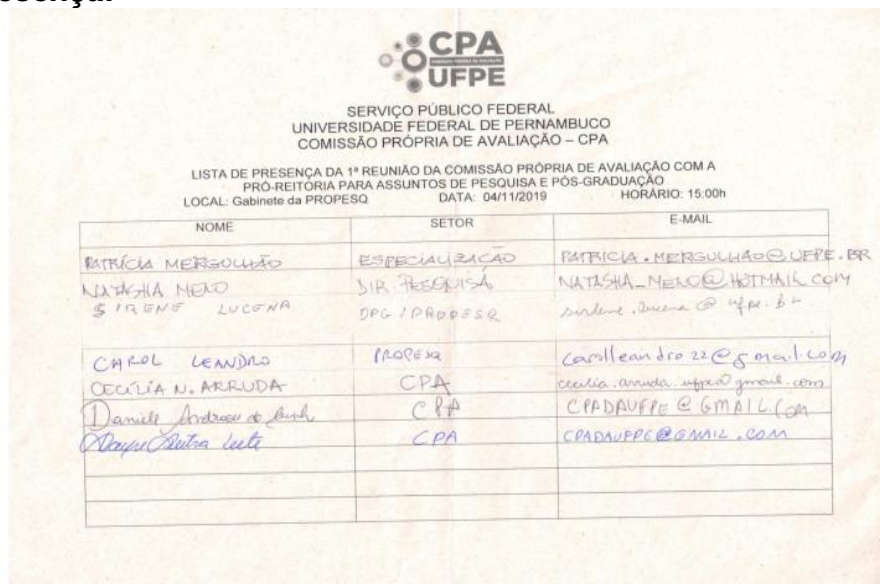 CPA
UFPE
SERVIÇO PÚBLICO FEDERAL
UNIVERSIDADE FEDERAL DE PERNAMBUCO
COMISSÃO PRÓPRIA DE AVALIAÇÃO – CPA
LISTA DE PRESENÇA DA 1ª REUNIÃO DA COMISSÃO PRÓPRIA DE AVALIAÇÃO COM A
PRÓ-REITORIA PARA ASSUNTOS DE PESQUISA E PÓS-GRADUAÇÃO
LOCAL: Gabinete da PROPESQ DATA: 04/11/2019 HORÁRIO: 15:00h
NOME SETOR E-MAIL
PATRÍCIA MERGULHÃO ESPECIALIZAÇÃO PATRICIA.MERGULHAO@UFPE.BR
NATASHA MELO DIR. PESQUISA NATASHA_MELO@HOTMAIL.COM
SIRLENE LUCENA DPG/PROPESQ sirlene.lucena@ufpe.br
CAROL LEANDRO PROPESQ carolleandro22@gmail.com
CECÍLIA N. ARRUDA CPA cecilia.arruda.ufpe@gmail.com
Daniele CPA CPADAUFPE@GMAIL.COM
Dutra Leite CPA CPADAUFPE@GMAIL.COM